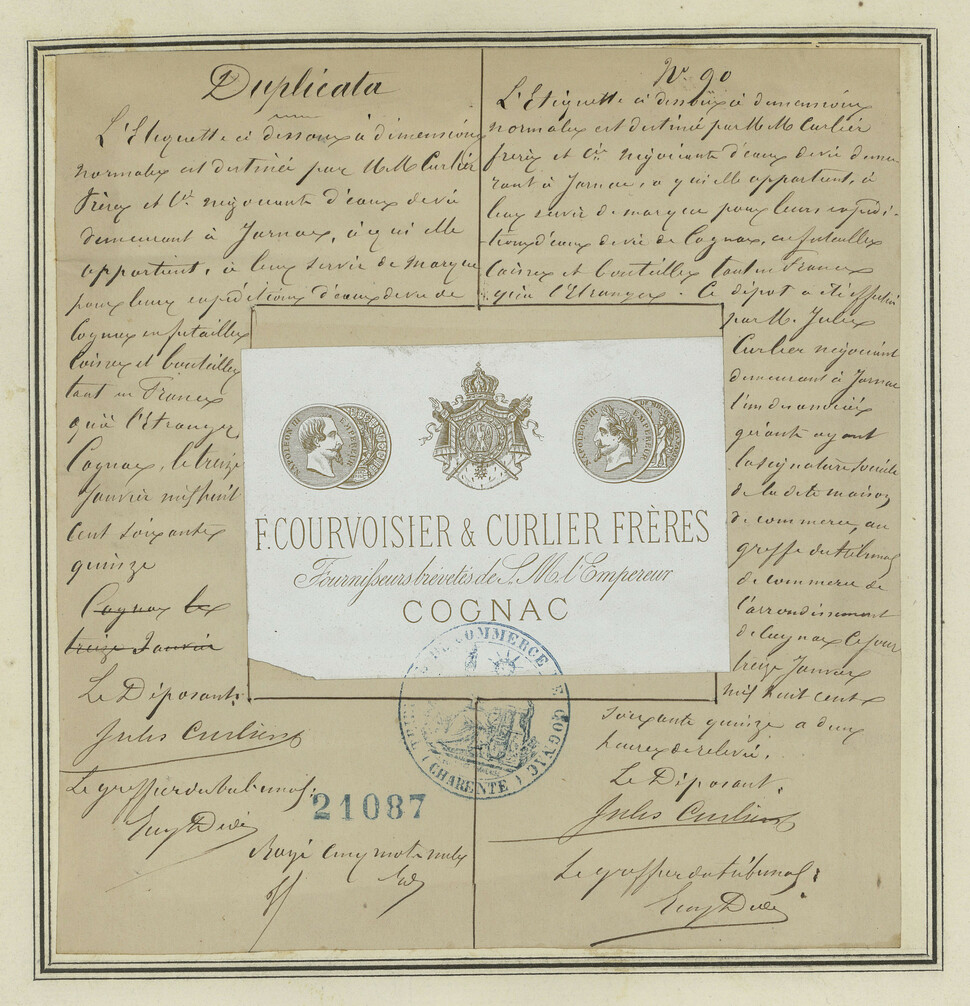 Duplicata
L'Etiquette ci dessous à dimensions
normales est destinée par M.M. Curlier
frères et Cie négociants d'eaux de vie
demeurant à Jarnac, à qui elle
appartient, à leur servir de marque
pour leurs expéditions d'eaux de vie de
Cognac en futailles
Caisses et bouteilles
tant en France
qu'à l'Etranger,
Cognac, le treize
Janvier mil huit
cent soixante
quinze
Cognac le
treize Janvier
Le Déposant:
Jules Curlier
Le greffier du tribunal:
Rayé cinq mots nuls
N° 90
L'Etiquette ci dessous à dimensions
normales est destinée par M.M. Curlier
frères et Cie négociants d'eaux de vie demeu
rant à Jarnac, à qui elle appartient, à
leur servir de marque pour leurs expédi-
tions d'eaux de vie de Cognac, en futailles
Caisses et bouteilles tant en France
qu'à l'Etranger. Ce dépot a été effectué
par M. Jules
Curlier négociant
demeurant à Jarnac
l'un des associés
gérants ayant
la signature sociale
de la dite maison
de commerce, au
greffe du tribunal
de commerce de
l'arrondissement
de Cognac Ce jour
treize Janvier
mil huit cent
soixante quinze à deux
heures de relevée.
Le Déposant,
Jules Curlier
Le greffier du tribunal:
NAPOLEON III EMPEREUR
NAPOLEON III EMPEREUR
F. COURVOISIER & CURLIER FRÈRES
Fournisseurs brévetés de S. M. l'Empereur
COGNAC
TRIBUNAL DE COMMERCE DE COGNAC
(CHARENTE)
21087